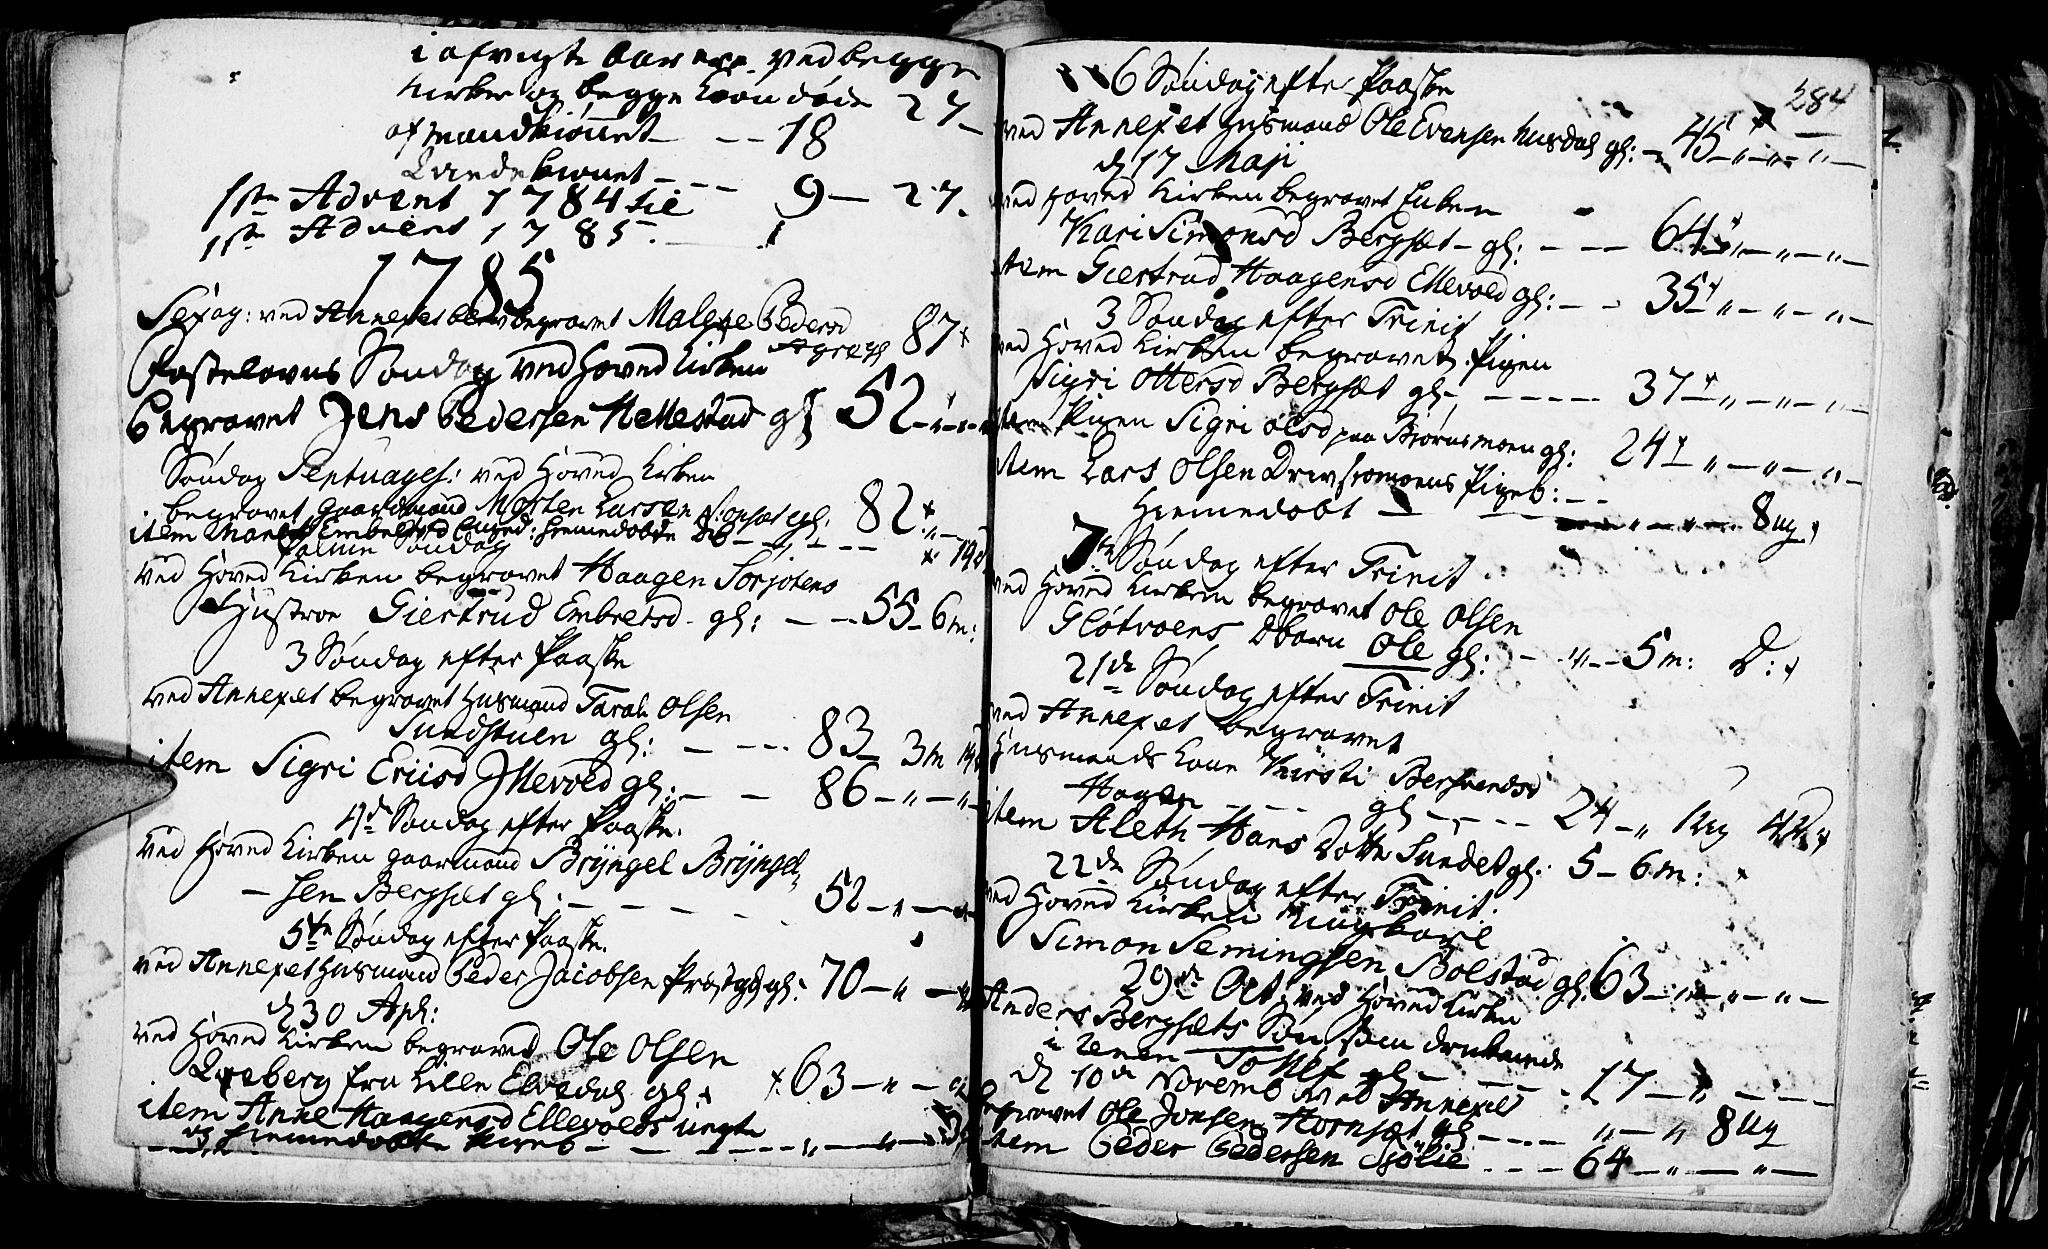 i afvigte Aar ere ved begge
Kirker og begge Kiøn døde 27
af Mandkiønnet - - 18
Qvindekiønnet - - - 9 - 27.
1ste Advent 1784 til
1ste Advent 1785.
1785
Sexag: ved Annexet blev begravet Malene Pedersd
87
Fastelavns Søndag ved Hoved Kirken
Begravet Jens Pedersen Hellestad gl 52 - " - "
Søndag Septuages: ved Hoved Kirken
begravet Gaardmand Morten Larsen gl. 82 "
item
Palme Søndag
ved Hoved Kirken begravet Haagen Torjotens
Hustroe Giertrud Embretsd - gl: - - 55 - 6 m:
3 Søndag efter Paaske
ved Annexet begravet Husmand Tarald Olsen
Sundstuen gl: - - - - 83 - 3 m
item Sigri Eriisd Jllevold gl: - - 86 - " - "
4de Søndag efter Paaske.
ved Hoved Kirken gaarmand Bryngel Bryngel-
- sen Bergsæt gl: - - - - 52 - " - "
5te Søndag efter Paaske.
ved Annexet Husmand Peder Jacobsen Præstgd gl: 70 - " - "
d 30 Apl:
ved Hoved Kirken begraved Ole Olsen
fra Lille Elvedal gl: 63 - " -
item Anne Haagensd Ellevolds ungte
hiemmedøbte
284
6 Søndag efter Paaske
ved Annexet Husmand Ole Evensen Husdal gl: - 45 - " - " - " -
d 17 Maji
ved Hoved Kirken begravet Enken
Kari Simonsd Bergsæt - gl: - - - 64 - " - " - " -
item Giertrud Haagensd Ellevold gl: - - 35 - " - " - " -
3 Søndag efter Trinit
ved Hoved Kirken begravet Pigen
Sigri Ottersd Bergsæt gl - - - - - 37 - " - " - " -
item Pigen Sigri Olsd paa Biørnsmoen gl: 24 - " - " - " -
item Lars Olsen Drivstomoens Pigeb: - -
Hiemmedøbt - - - " - " - 8 ug
7de Søndag efter Trinit
ved Hoved Kirken begravet Ole Olsen
Gløtvoens dbarn Ole gl: - " - - 5 m: D:
21de Søndag efter Trinit
ved Annexet begravet
Husmands Kone Kirsti Bersvendsd
Hagen - - - gl - - - - 24 - "
item Aleth Hans Dotter Sundet gl: 5 - 6 m:
22de Søndag efter Trinit
ved Hoved Kirken Ungkarl
Simon Semingsen Bolstad gl. 63 - " - " - " -
29de Oct: ved Hoved Kirken
Anders Bergsæts Søn som druknede
i Elven Tollef gl - - - 17 - " - - -
d 10de Novemb ved Annexet
begravet Ole Jonsen Hornsæt gl - - - " - " 8 ug
item Peder Pedersen Siølie - - - 64 - " - " -